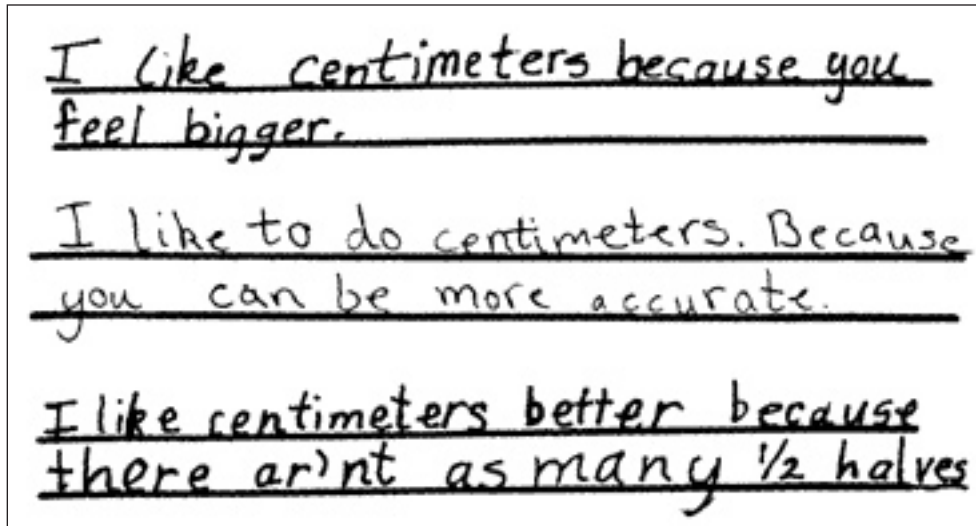 I like centimeters because you
feel bigger.
I like to do centimeters. Because
you can be more accurate.
I like centimeters better because
there ar'nt as many 1/2 halves